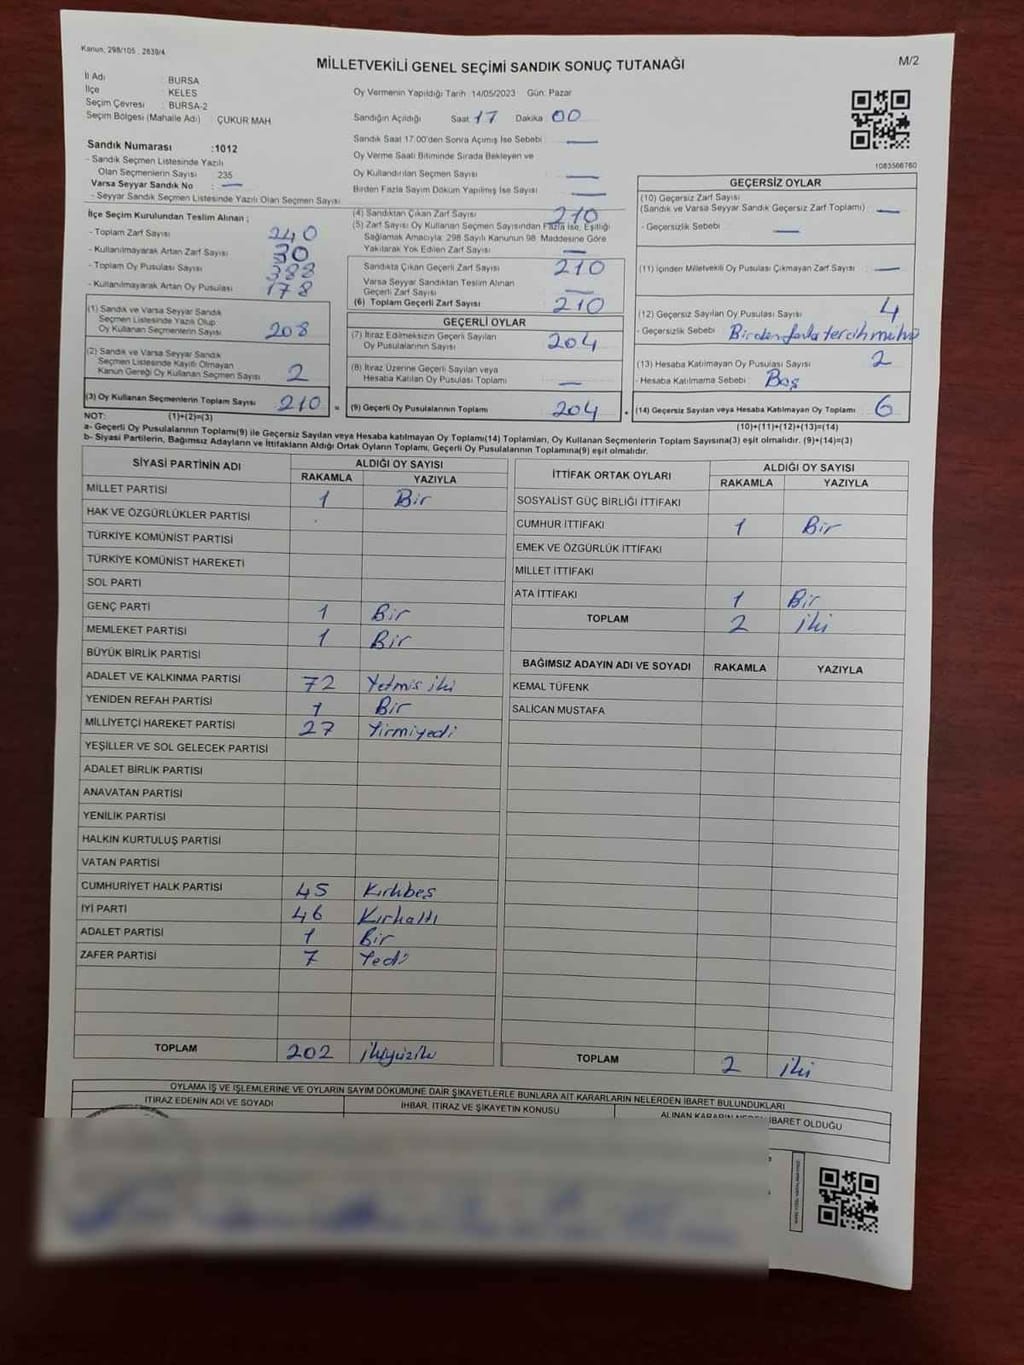 Kanun, 298/105 , 2839/4
MİLLETVEKİLİ GENEL SEÇİMİ SANDIK SONUÇ TUTANAĞI
M/2
İl Adı : BURSA
İlçe : KELES
Seçim Çevresi : BURSA-2
Seçim Bölgesi (Mahalle Adı) : ÇUKUR MAH.
Oy Vermenin Yapıldığı Tarih :14/05/2023 Gün: Pazar
Sandığın Açıldığı Saat 17 Dakika 00
Sandık Saat 17:00'den Sonra Açımış İse Sebebi : —
Oy Verme Saati Bitiminde Sırada Bekleyen ve
Oy Kullandırılan Seçmen Sayısı : —
Birden Fazla Sayım Döküm Yapılmış İse Sayısı : —
1083566760
Sandık Numarası :1012
- Sandık Seçmen Listesinde Yazılı
Olan Seçmenlerin Sayısı 235
Varsa Seyyar Sandık No : —
- Seyyar Sandık Seçmen Listesinde Yazılı Olan Seçmen Sayısı
İlçe Seçim Kurulundan Teslim Alınan ;
- Toplam Zarf Sayısı : 240
- Kullanılmayarak Artan Zarf Sayısı : 30
- Toplam Oy Pusulası Sayısı : 388
- Kullanılmayarak Artan Oy Pusulası : 178
(1) Sandık ve Varsa Seyyar Sandık
Seçmen Listesinde Yazılı Olup
Oy Kullanan Seçmenlerin Sayısı : 208
(2) Sandık ve Varsa Seyyar Sandık
Seçmen Listesinde Kayıtlı Olmayan
Kanun Gereği Oy Kullanan Seçmen Sayısı : 2
(3) Oy Kullanan Seçmenlerin Toplam Sayısı : 210
(4) Sandıktan Çıkan Zarf Sayısı : 210
(5) Zarf Sayısı Oy Kullanan Seçmen Sayısından Fazla İse, Eşitliği
Sağlamak Amacıyla; 298 Sayılı Kanunun 98. Maddesine Göre
Yakılarak Yok Edilen Zarf Sayısı : —
Sandıkta Çıkan Geçerli Zarf Sayısı : 210
Varsa Seyyar Sandıktan Teslim Alınan
Geçerli Zarf Sayısı : —
(6) Toplam Geçerli Zarf Sayısı : 210
GEÇERLİ OYLAR
(7) İtiraz Edilmeksizin Geçerli Sayılan
Oy Pusulalarının Sayısı : 204
(8) İtiraz Üzerine Geçerli Sayılan veya
Hesaba Katılan Oy Pusulası Toplamı : —
= (9) Geçerli Oy Pusulalarının Toplamı : 204
GEÇERSİZ OYLAR
(10) Geçersiz Zarf Sayısı
(Sandık ve Varsa Seyyar Sandık Geçersiz Zarf Toplamı) : —
- Geçersizlik Sebebi : —
(11) İçinden Milletvekili Oy Pusulası Çıkmayan Zarf Sayısı : —
(12) Geçersiz Sayılan Oy Pusulası Sayısı : 4
- Geçersizlik Sebebi : Birden fazla tercih mühü
(13) Hesaba Katılmayan Oy Pusulası Sayısı : 2
- Hesaba Katılmama Sebebi : Boş
(14) Geçersiz Sayılan veya Hesaba Katılmayan Oy Toplamı : 6
NOT: (1)+(2)=(3)
(10)+(11)+(12)+(13)=(14)
a- Geçerli Oy Pusulalarının Toplamı(9) ile Geçersiz Sayılan veya Hesaba katılmayan Oy Toplamı(14) Toplamları, Oy Kullanan Seçmenlerin Toplam Sayısına(3) eşit olmalıdır. (9)+(14)=(3)
b- Siyasi Partilerin, Bağımsız Adayların ve İttifakların Aldığı Ortak Oyların Toplamı, Geçerli Oy Pusulalarının Toplamına(9) eşit olmalıdır.
SİYASİ PARTİNİN ADI ALDIĞI OY SAYISI
RAKAMLA YAZIYLA
MİLLET PARTİSİ 1 Bir
HAK VE ÖZGÜRLÜKLER PARTİSİ
TÜRKİYE KOMÜNİST PARTİSİ
TÜRKİYE KOMÜNİST HAREKETİ
SOL PARTİ
GENÇ PARTİ 1 Bir
MEMLEKET PARTİSİ 1 Bir
BÜYÜK BİRLİK PARTİSİ
ADALET VE KALKINMA PARTİSİ 72 Yetmis iki
YENİDEN REFAH PARTİSİ 1 Bir
MİLLİYETÇİ HAREKET PARTİSİ 27 Yirmiyedi
YEŞİLLER VE SOL GELECEK PARTİSİ
ADALET BİRLİK PARTİSİ
ANAVATAN PARTİSİ
YENİLİK PARTİSİ
HALKIN KURTULUŞ PARTİSİ
VATAN PARTİSİ
CUMHURİYET HALK PARTİSİ 45 Kırkbeş
İYİ PARTİ 46 Kırkaltı
ADALET PARTİSİ 1 Bir
ZAFER PARTİSİ 7 Yedi
TOPLAM 202 ikiyüziki
İTTİFAK ORTAK OYLARI ALDIĞI OY SAYISI
RAKAMLA YAZIYLA
SOSYALİST GÜÇ BİRLİĞİ İTTİFAKI
CUMHUR İTTİFAKI 1 Bir
EMEK VE ÖZGÜRLÜK İTTİFAKI
MİLLET İTTİFAKI
ATA İTTİFAKI 1 Bir
TOPLAM 2 iki
BAĞIMSIZ ADAYIN ADI VE SOYADI RAKAMLA YAZIYLA
KEMAL TÜFENK
SALİCAN MUSTAFA
TOPLAM 2 iki
OYLAMA İŞ VE İŞLEMLERİNE VE OYLARIN SAYIM DÖKÜMÜNE DAİR ŞİKAYETLERLE BUNLARA AİT KARARLARIN NELERDEN İBARET BULUNDUKLARI
İTİRAZ EDENİN ADI VE SOYADI İHBAR, İTİRAZ VE ŞİKAYETİN KONUSU ALINAN KARARIN NEDEN İBARET OLDUĞU